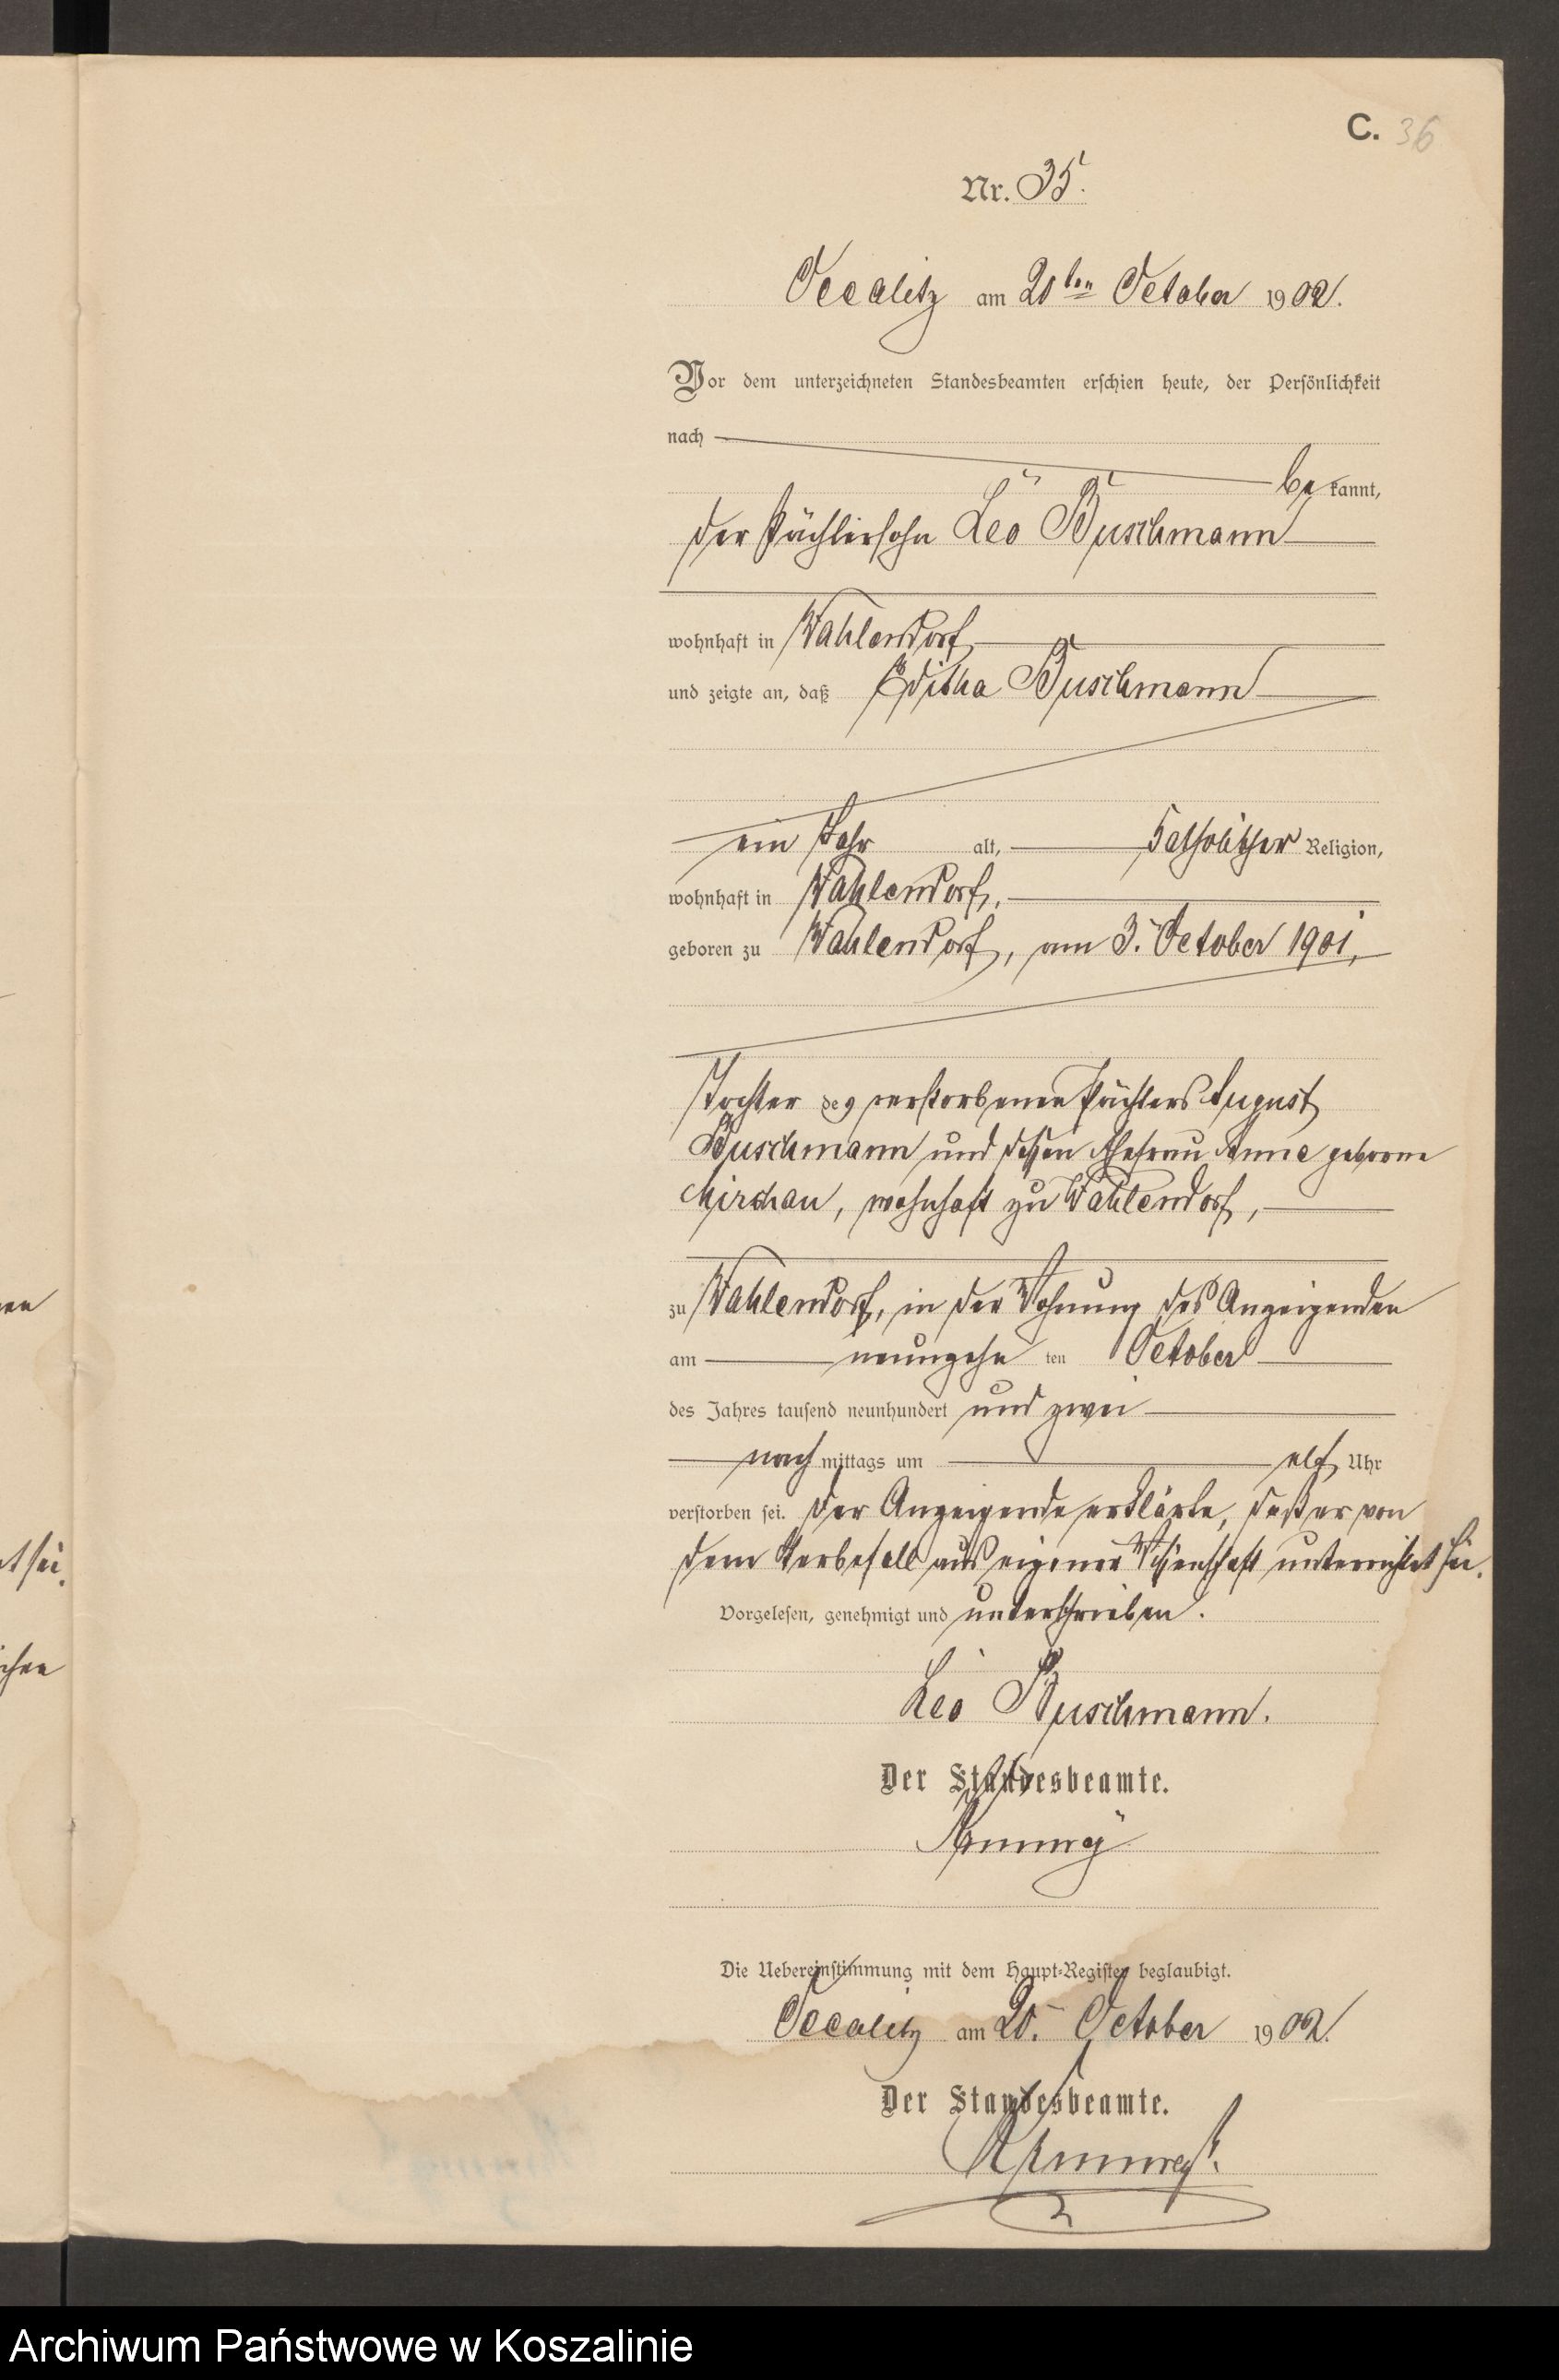 C. 36
Nr. 35.
Occalitz am 20ten October 1902.
Vor dem unterzeichneten Standesbeamten erschien heute, der Persönlichkeit
nach
be kannt,
der Pächtersohn Leo Buschmann
wohnhaft in Wahlendorf
und zeigte an, daß Editha Buschmann
ein Jahr alt, katholischer Religion,
wohnhaft in Wahlendorf,
geboren zu Wahlendorf, am 3. October 1901,
Tochter des verstorbenen Pächters August
Buschmann und dessen Ehefrau Anna geborne
Mirchau, wohnhaft zu Wahlendorf,
zu Wahlendorf, in der Wohnung des Anzeigenden
am neunzehn ten October
des Jahres tausend neunhundert und zwei
nach mittags um elf Uhr
verstorben sei. Der Anzeigende erklärte, daß er von
dem Sterbefall aus eigener Wissenschaft unterrichtet sei.
Vorgelesen, genehmigt und unterschrieben.
Leo Buschmann.
Der Standesbeamte.
Die Uebereinstimmung mit dem Haupt-Register beglaubigt.
Occalitz am 20. October 1902.
Der Standesbeamte.
Archiwum Państwowe w Koszalinie